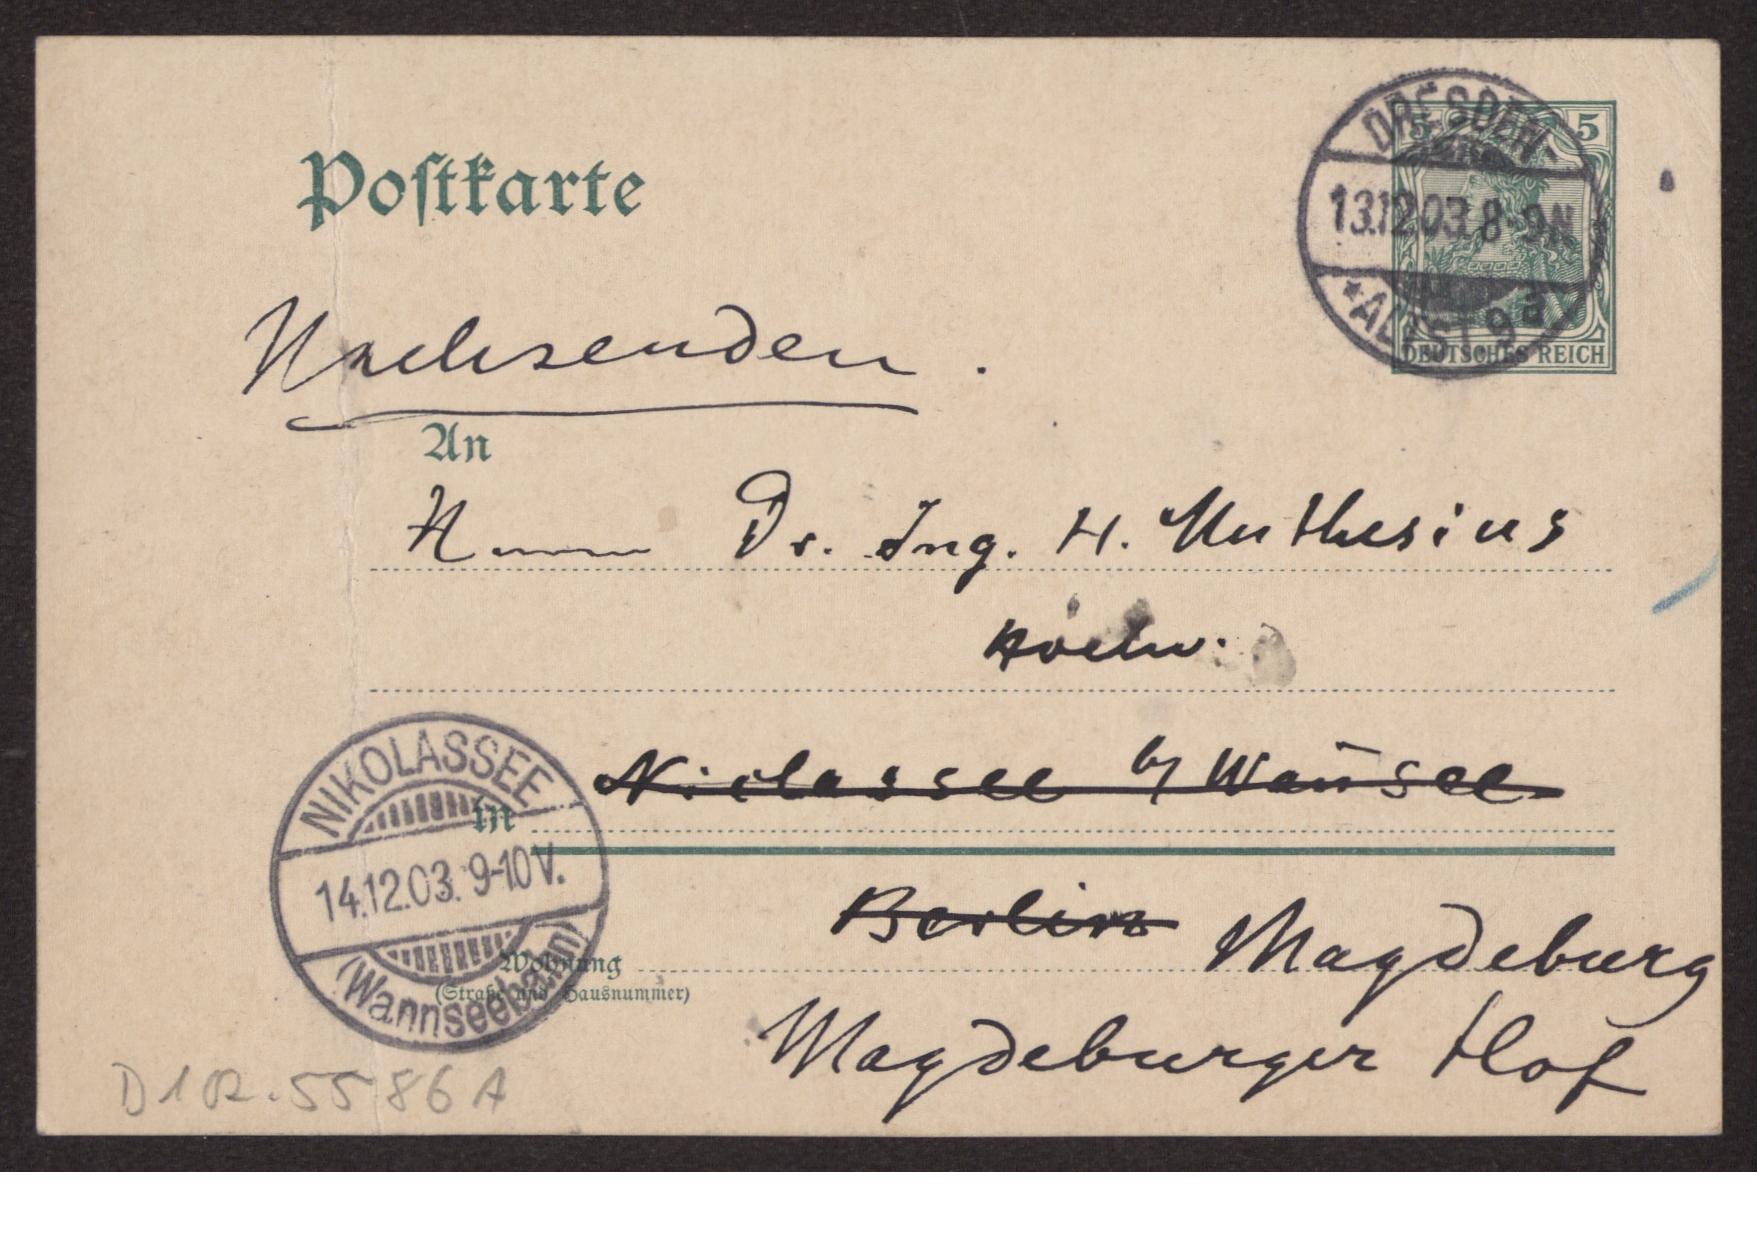 Postkarte
DRESDEN-
13.12.03.8-9N
*ALTST.9 d
5 5
DEUTSCHES REICH
Nachsenden.
An
Herrn Dr. Ing. H. Muthesius
Hochw.
NIKOLASSEE
14.12.03. 9-10V.
(Wannseebahn)
in Niclassee b/ Wan̄see
Berlin Magdeburg
Wohnung
(Straße und Hausnummer)
Magdeburger Hof
D 102-5586 A